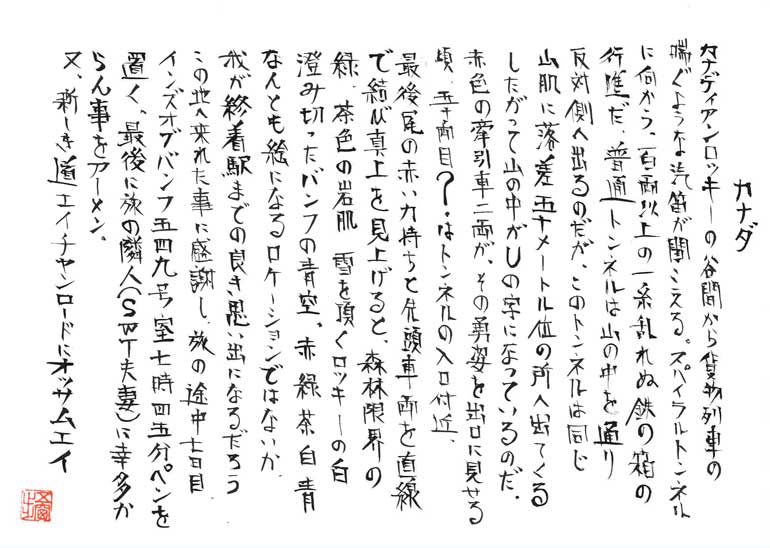 カナダ
カナディアンロッキーの谷間から貨物列車の
喘ぐような汽笛が聞こえる。スパイラルトンネル
に向かう、百両以上の一糸乱れぬ鉄の箱の
行進だ、普通トンネルは山の中を通り
反対側へ出るのだが、このトンネルは同じ
山肌に落差五十メートル位の所へ出てくる
したがって山の中がUの字になっているのだ、
赤色の牽引車二両が、その勇姿を出口に見せる
頃、五十両目?・はトンネルの入口付近、
最後尾の赤い力持ちと先頭車両を直線
で結び真上を見上げると、森林限界の
緑、茶色の岩肌 雪を頂くロッキーの白
澄み切ったバンフの青空、赤緑茶白青
なんとも絵になるロケーションではないか、
我が終着駅までの良き思い出になるだろう
この地へ来れた事に感謝し、旅の途中七日目
インズオブバンフ五四九号室七時四五分ペンを
置く、最後に旅の隣人(SWT夫妻)に幸多か
らん事をアーメン。
又、新しき道エイチャンロードにオッサムエイ